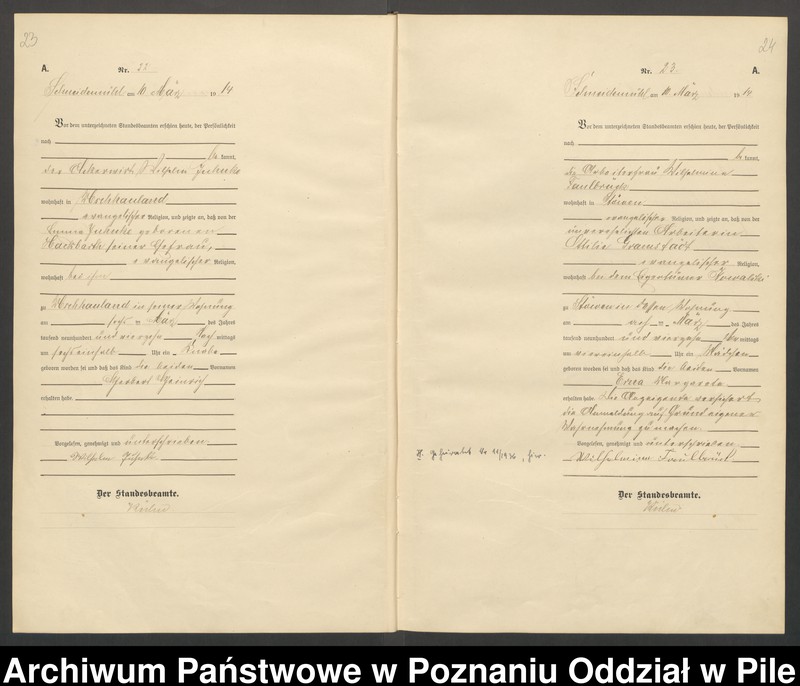 23
A.
Nr. 22
Schneidemühl am 10. März 19 14
Vor dem unterzeichneten Standesbeamten erschien heute, der Persönlichkeit
nach
be kannt,
der Ackerwirt Wilhelm
wohnhaft in Hochhauland
evangelischer Religion, und zeigte an, daß von der
Emma geborenen
Hackbarth seiner Ehefrau,
evangelischer Religion,
wohnhaft bei ihm
zu Hochhauland in seiner Wohnung
am März des Jahres
tausend neunhundert und vierzehn Nach mittags
um Uhr ein Knabe
geboren worden sei und daß das Kind die beiden Vornamen
Herbert Heinrich
erhalten habe.
Vorgelesen, genehmigt und unterschrieben
Wilhelm
Der Standesbeamte.
24
Nr. 23
A.
Schneidemühl am 10. März 19 14
Vor dem unterzeichneten Standesbeamten erschien heute, der Persönlichkeit
nach
be kannt,
die Arbeiterfrau Wilhelmine
Faulbrück
wohnhaft in Stöwen
evangelischer Religion, und zeigte an, daß von der
unverehelichten Arbeiterin
Ottilie Gramstädt
evangelischer Religion,
wohnhaft bei dem Eigentümer Kowalski
zu Stöwen in dessen Wohnung
am März des Jahres
tausend neunhundert und vierzehn Vor mittags
um Uhr ein Mädchen
geboren worden sei und daß das Kind die beiden Vornamen
Erna Margarete
erhalten habe. Die Anzeigende versichert
die Anmeldung auf Grund eigener
Wahrnehmung zu machen.
Vorgelesen, genehmigt und unterschrieben
Wilhelmine Faulbrück
geheiratet Nr 11/1936, hier.
Der Standesbeamte.
Archiwum Państwowe w Poznaniu Oddział w Pile